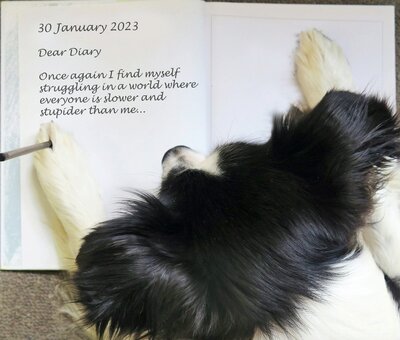 30 January 2023
Dear Diary
Once again I find myself
struggling in a world where
everyone is slower and
stupider than me...